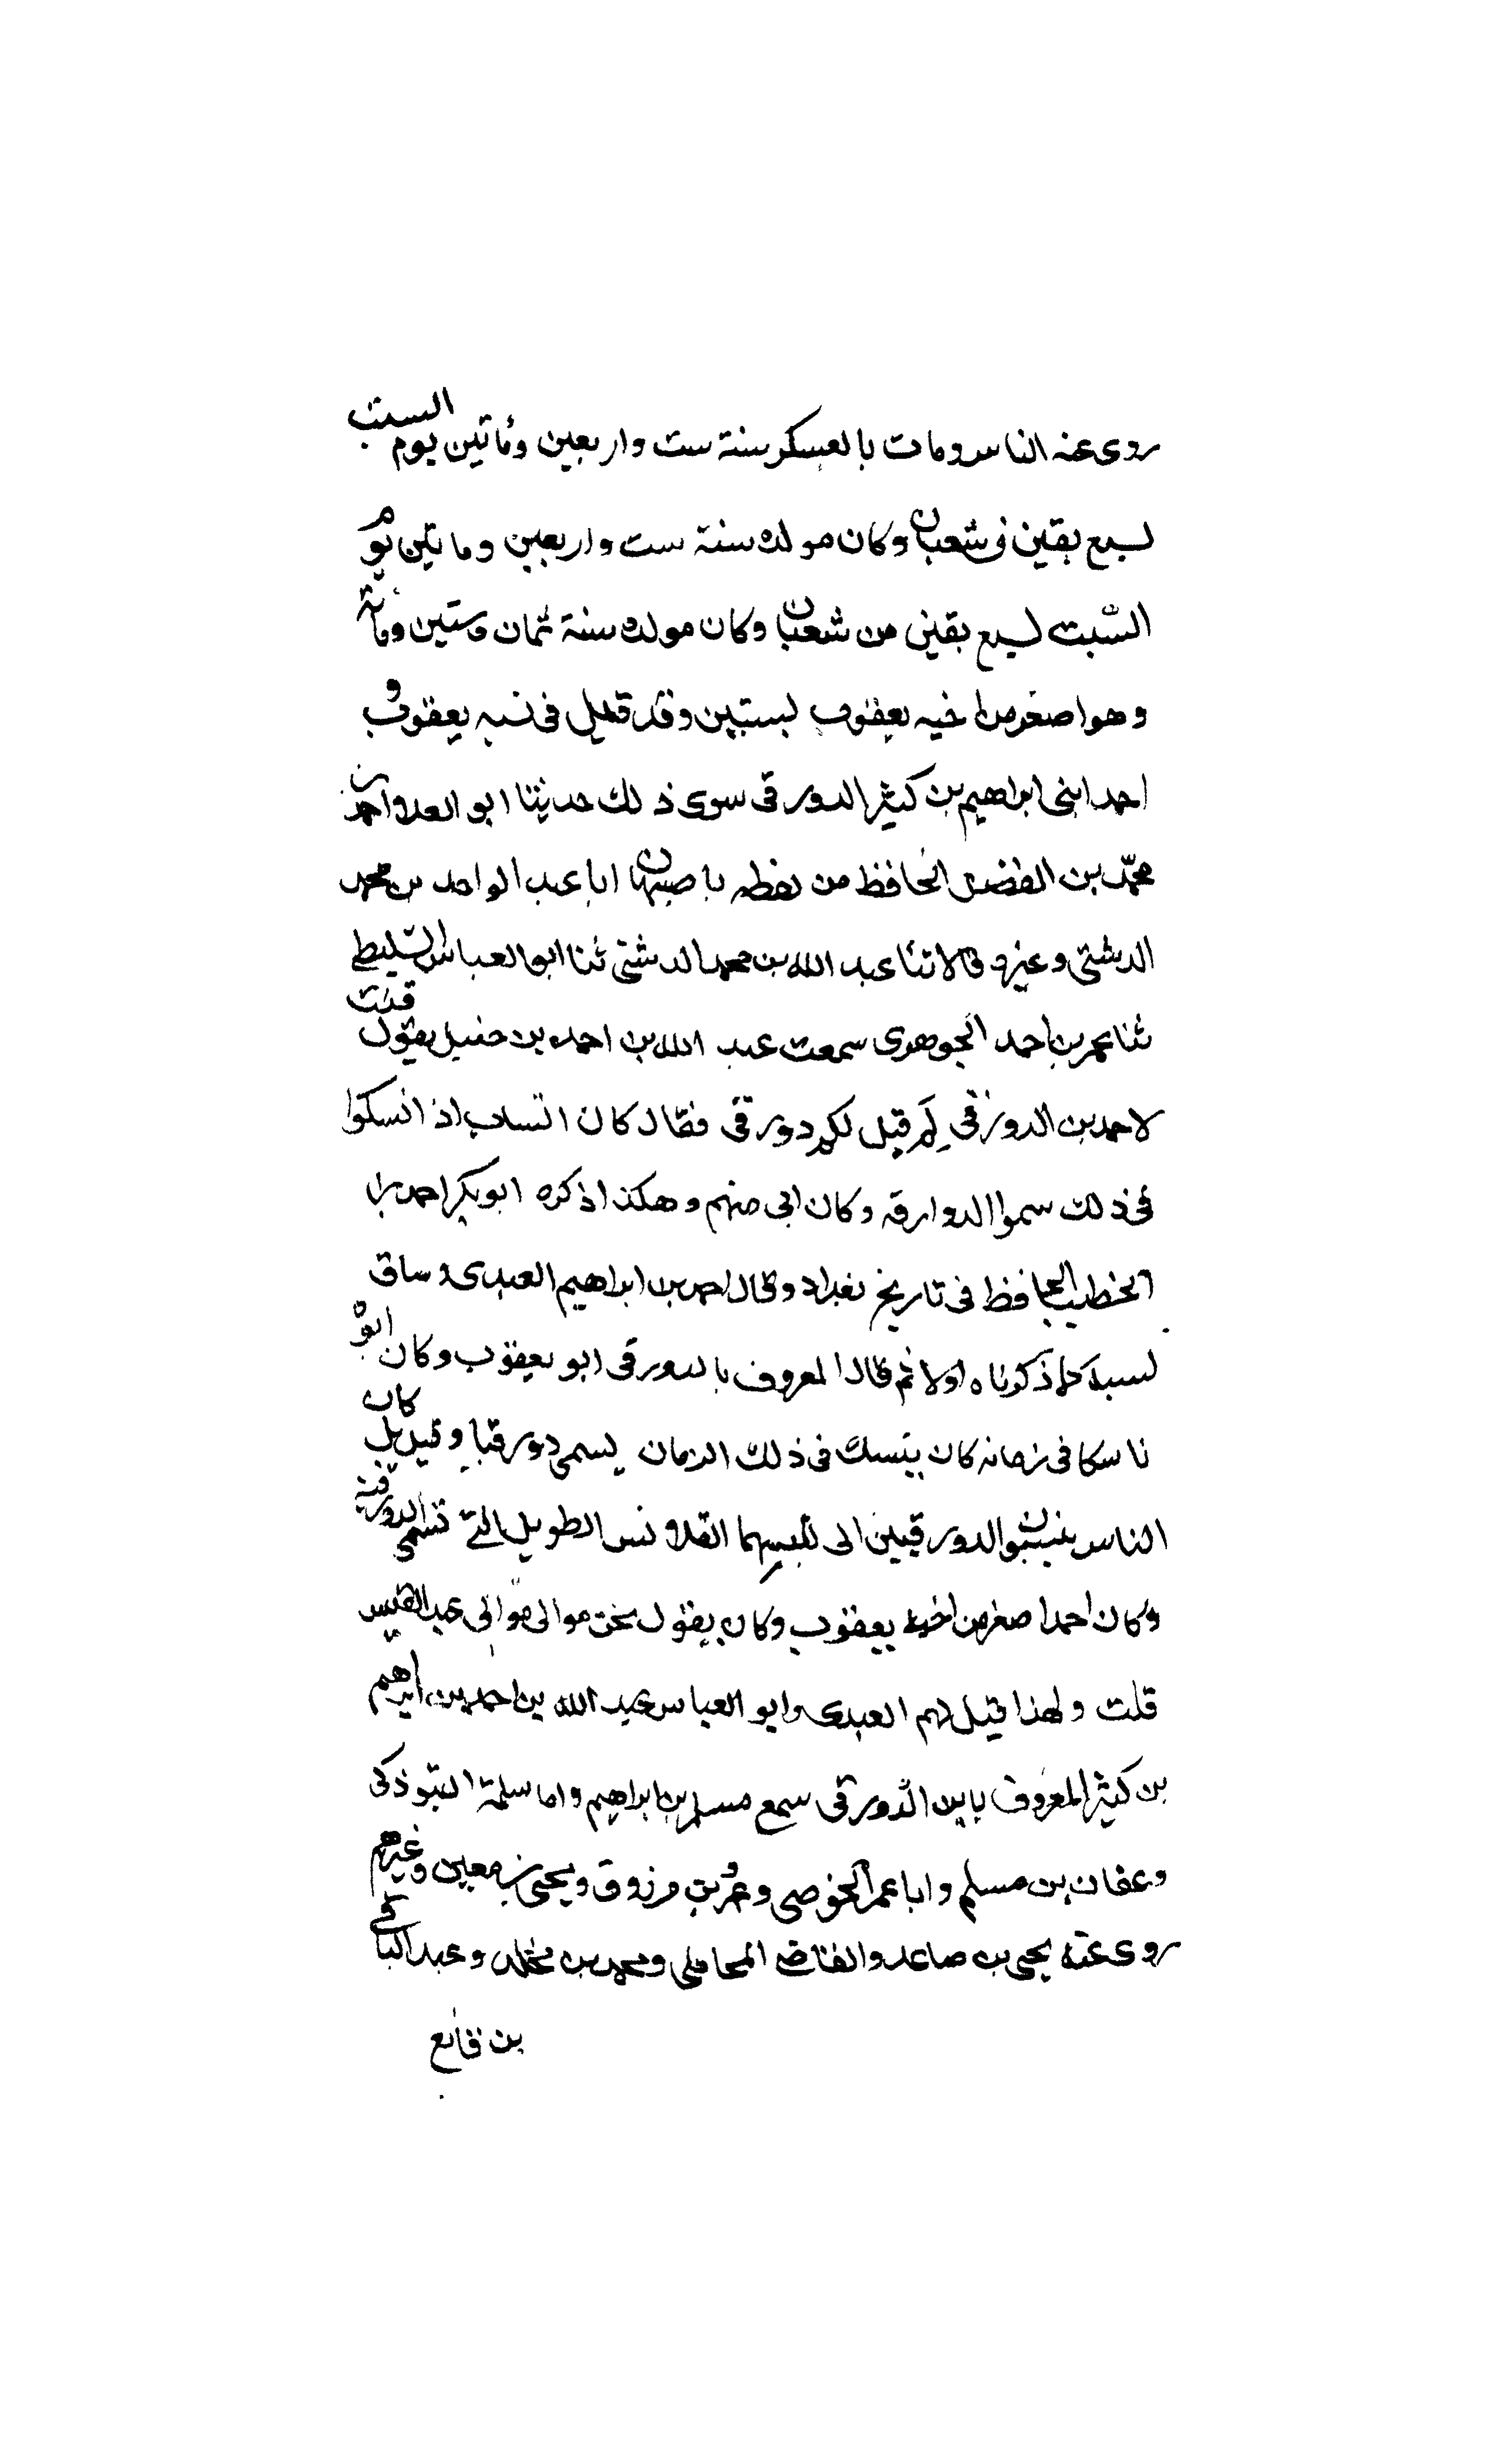 روى عنه الناس ومات بالعسكر سنة ست واربعين ومأتين يوم السبت
لسبع بقين فى شعبان وكان مولده سنة ست واربعين وماتين يوم
السّبت لسبع بقين من شعبان وكان مولده سنة ثمان وستين ومائة
وهو اصغر من اخيه يعقوب بسنتين وقد قيل فى نسبه يعقوب و
احمد ابنى ابراهيم بن كثير الدورقى سوى ذلك حديثنا ابو العلا احمد بن
محمّد بن الفضل الحافظ من لفظه باصبهان ابا عبد الواحد بن محمد
الدشتى وغيره قالا ثنا عبد الله بن محمد الدشتى ثنا ابو العباس السليطى
ثنا عمر بن احمد الجوهرى سمعت عبد الله بن احمد بن حنبل يقول قلت
لاحمد بن الدورقى لِمَ قيل لكم دورقى فقال كان الشباب اذا نسكوا
فى ذلك سموا الدوارقه وكان ابى منهم وهكذا ذكره ابو بكر احمد بن
الخطيب الحافظ فى تاريخ بغداد وقال احمد بن ابراهيم العبدى وساق
نسبه كما ذكرناه اولا ثم قال المعروف بالدورقى ابو يعقوب وكان ابوه
ناسكا فى زمانه كان يتنسك فى ذلك الزمان يسمى دورقيا وقيل بل كان
الناس ينسبون الدورقيين الى لبسهما القلانس الطويل التى تسمى الدورقية
وكان احمد اصغر من اخيه يعقوب وكان يقول نحن موالى موالى عبد القيس
قلت ولهذا قيل لهم العبدى وابو العباس عبد الله بن احمد بن ابراهيم
بن كثير المعروف بابن الدّورقى سمع مسلم بن ابراهيم وابا سلمة التبوذكى
وعفان بن مسلم وابا عمر الحوضى وعمرو بن مرزوق ويحيى بن معين وغيرهم
روى عنه يحيى بن صاعد والقاضى المحاملى ومحمد بن مخلد وعبد الباقى
بن قانع